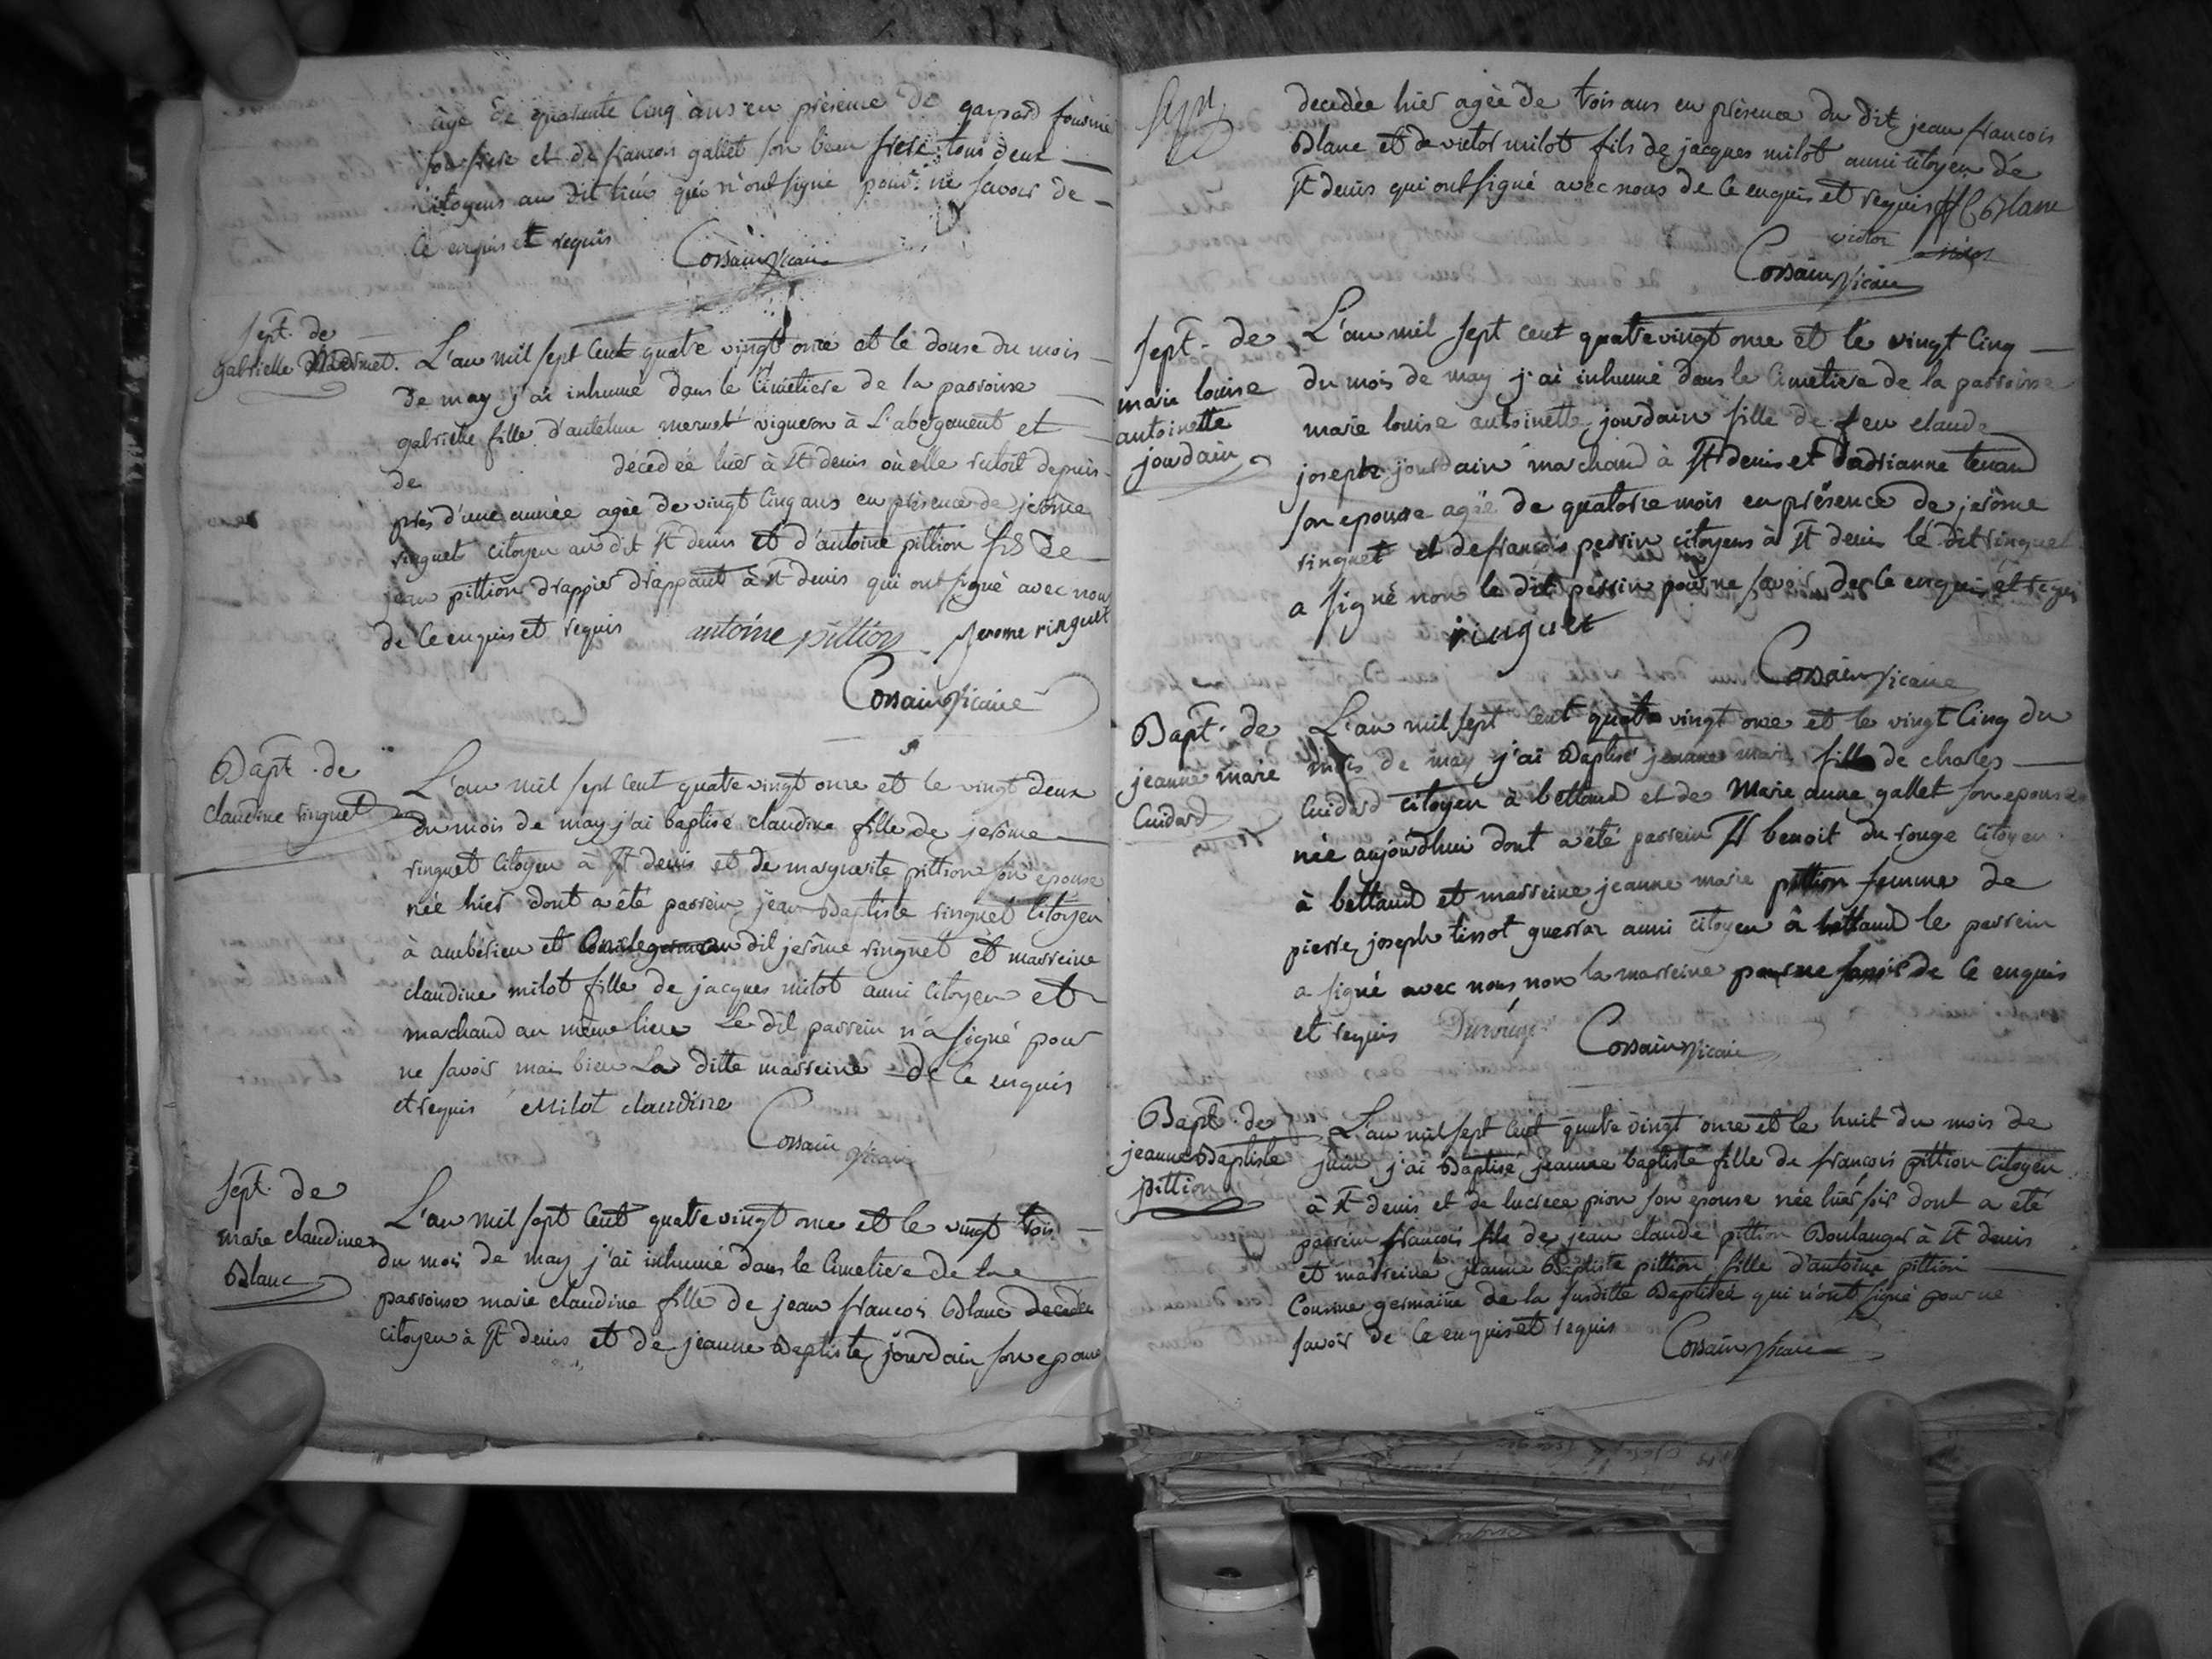 âgé de quarante cinq ans en présence de gaspard
son frere et de francois gallet son beau frere tous deux
citoyens au dit lieu qui n'ont signé pour ne savoir de
ce enquis et requis
Cossain vicaire
sept. de
gabrielle mermet.
L'an mil sept cent quatre vingt onze et le douse du mois
de may j'ai inhumé dans le cimetiere de la parroisse
gabrielle fille d'antelme mermet vigneron à L'abergement et
de décédée hier à St denis où elle restoit depuis
près d'une année agée de vingt cinq ans en présence de jerôme
ringuet citoyen au dit St denis et d'antoine pittion fils de
jean pittion drappier drappant à St denis qui ont signé avec nous
de ce enquis et requis antoine pittion jerome ringuet
Cossain vicaire
Bapt. de
claudine ringuet
L'an mil sept cent quatre vingt onze et le vingt deux
du mois de may j'ai baptisé claudine fille de jerôme
ringuet citoyen à St denis et de marguerite pittion son epouse
née hier dont a été parrein jean Baptiste ringuet citoyen
à ambérieu et dit jerôme ringuet et marreine
claudine milot fille de jacques milot aussi citoyen et
marchand au même lieu Le dit parrein n'a signé pour
ne savoir mais bien La ditte marreine de ce enquis
et requis Milot claudine
Cossain vicaire
sept. de
marie claudine
Blanc
L'an mil sept cent quatre vingt onze et le vingt trois
du mois de may j'ai inhumé dans le cimetiere de la
parroisse marie claudine fille de jean francois Blanc decedée
citoyen à St denis et de jeanne Baptiste jourdain son epouse
decedée hier agée de trois ans en présence du dit jean francois
Blanc et de victor milot fils de jacques milot aussi citoyen de
St denis qui ont signé avec nous de ce enquis et requis Blanc
victor
Cossain vicaire
sept. de
marie louise
antoinette
jourdain
L'an mil sept cent quatre vingt onze et le vingt cinq
du mois de may j'ai inhumé dans le cimetiere de la parroisse
marie louise antoinette jourdain fille de feu claude
joseph jourdain marchand à St denis et d'adrianne tenand
son epouse agée de quatorze mois en présence de jerôme
ringuet et de francois perrin citoyens à St denis le dit ringuet
a signé non le dit perrin pour ne savoir de ce enquis et requis
ringuet
Cossain vicaire
Bapt. de
jeanne marie
Cuidard
L'an mil sept cent quatre vingt onze et le vingt cinq du
mois de may j'ai Baptisé jeanne marie fille de charles
Cuidard citoyen à bettand et de Marie anne gallet son epouse
née aujourdhui dont a été parrein Sr benoit du rouge citoyen
à bettand et marreine jeanne marie pittion femme de
pierre joseph tissot guerraz aussi citoyen à bettand le parrein
a signé avec nous non la marreine pour ne savoir de ce enquis
et requis Durouge Cossain vicaire
Bapt. de
jeanne Baptiste
pittion
L'an mil sept cent quatre vingt onze et le huit du mois de
juin j'ai Baptisé jeanne baptiste fille de françois pittion citoyen
à St denis et de lucrece pion son epouse née hier soir dont a été
parrein françois fils de jean claude pittion Boulanger à St denis
et marreine jeanne Baptiste pittion fille d'antoine pittion
Cousine germaine de la susditte Baptisée qui n'ont signé pour ne
savoir de ce enquis et requis Cossain vicaire